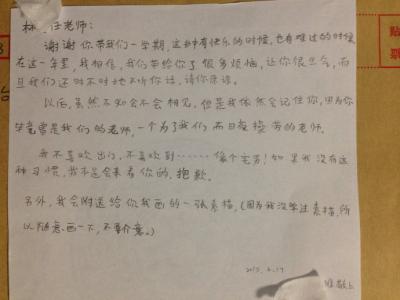 林 任老师：
谢谢你带我们一学期，这其中有快乐的时候，也有难过的时候
在这一年里，我相信，我们带给你了很多烦恼，让你很生气，而
且我们还时不时地不听你话，请你原谅。
以后，虽然不知会不会相见，但是我依然会记住你，因为你
毕竟曾是我们的老师，一个为了我们而日夜操劳的老师。
我不喜欢出门，不喜欢到……像个宅男！如果我没有这
种习惯，我不是会来看你的，抱歉。
另外，我会附送给你我画的一张素描，(因为我没学过素描，所
以随意画一下，不要介意。)
敬上
贴
票